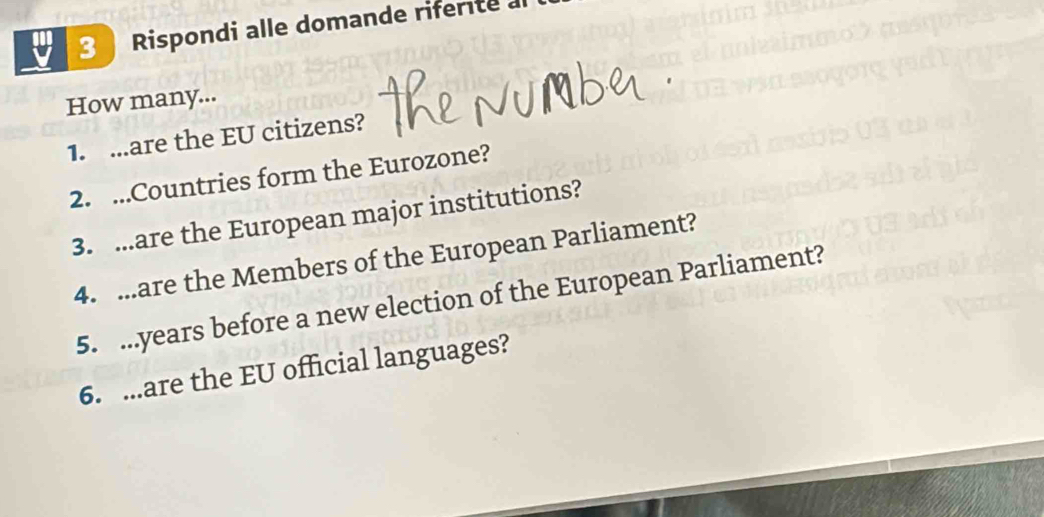 3 Rispondi alle domande riferite
How many...
the Number.
1. ...are the EU citizens?
2. ...Countries form the Eurozone?
3. ...are the European major institutions?
4. ...are the Members of the European Parliament?
5. ...years before a new election of the European Parliament?
6. ...are the EU official languages?